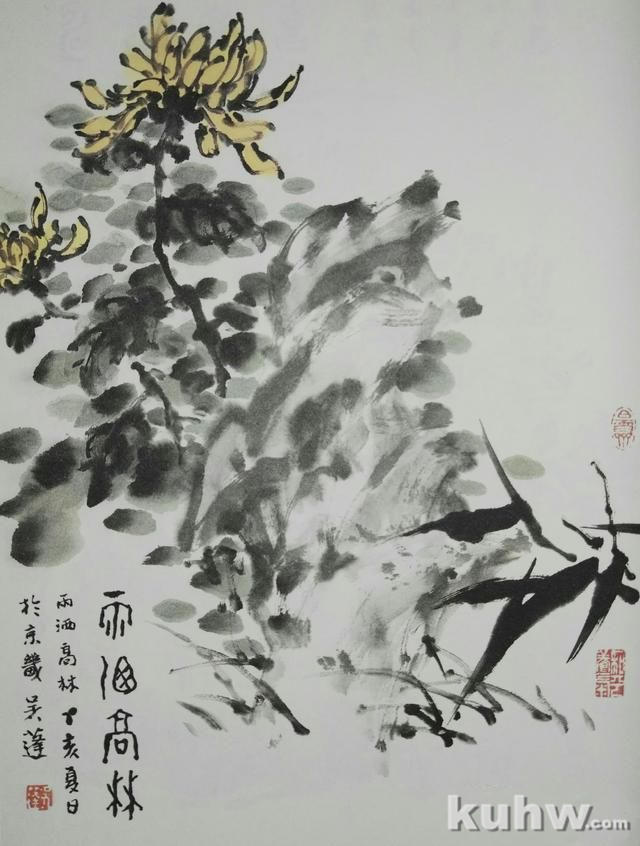 雨洒高林
雨洒高林 丁亥夏日
於京畿吴蓬
kuhw.com